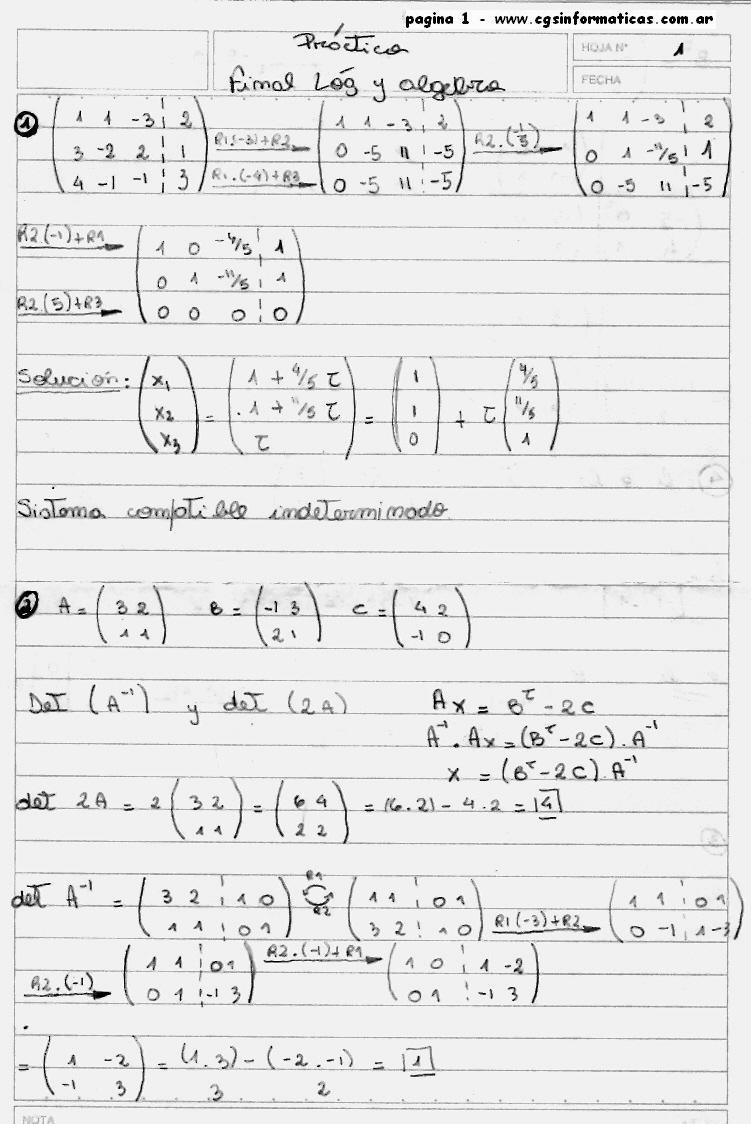 pagina 1 - www.cgsinformaticas.com.ar
Práctica
Final Lóg y algebra
HOJA Nº 1
FECHA
① ( 1 1 -3 ¦ 2 ; 3 -2 2 ¦ 1 ; 4 -1 -1 ¦ 3 ) R1.(-3)+R2 R1.(-4)+R3 ( 1 1 -3 ¦ 2 ; 0 -5 11 ¦ -5 ; 0 -5 11 ¦ -5 ) R2.(-1/5) ( 1 1 -3 2 ; 0 1 -11/5 ¦ 1 ; 0 -5 11 ¦ -5 )
R2.(-1)+R1 R2.(5)+R3 ( 1 0 -4/5 ¦ 1 ; 0 1 -11/5 ¦ 1 ; 0 0 0 ¦ 0 )
Solución: ( x1 ; x2 ; x3 ) = ( 1 + 4/5 τ ; 1 + 11/5 τ ; τ ) = ( 1 ; 1 ; 0 ) + τ ( 4/5 ; 11/5 ; 1 )
Sistema compatible indeterminado
② A = ( 3 2 ; 1 1 ) B = ( -1 3 ; 2 1 ) C = ( 4 2 ; -1 0 )
Det (A⁻¹) y det (2A)
Ax = Bᵗ - 2C
A⁻¹. Ax = (Bᵗ - 2C). A⁻¹
x = (Bᵗ - 2C). A⁻¹
det 2A = 2 ( 3 2 ; 1 1 ) = ( 6 4 ; 2 2 ) = (6.2) - 4.2 = |4|
det A⁻¹ = ( 3 2 ¦ 1 0 ; 1 1 ¦ 0 1 ) R1 R2 ( 1 1 ¦ 0 1 ; 3 2 ¦ 1 0 ) R1(-3)+R2 ( 1 1 ¦ 0 1 ; 0 -1 ¦ 1 -3 )
R2.(-1) ( 1 1 ¦ 0 1 ; 0 1 ¦ -1 3 ) R2.(-1)+R1 ( 1 0 ¦ 1 -2 ; 0 1 ¦ -1 3 )
= ( 1 -2 ; -1 3 ) = (1.3) - (-2.-1) = |1|
3 2
NOTA